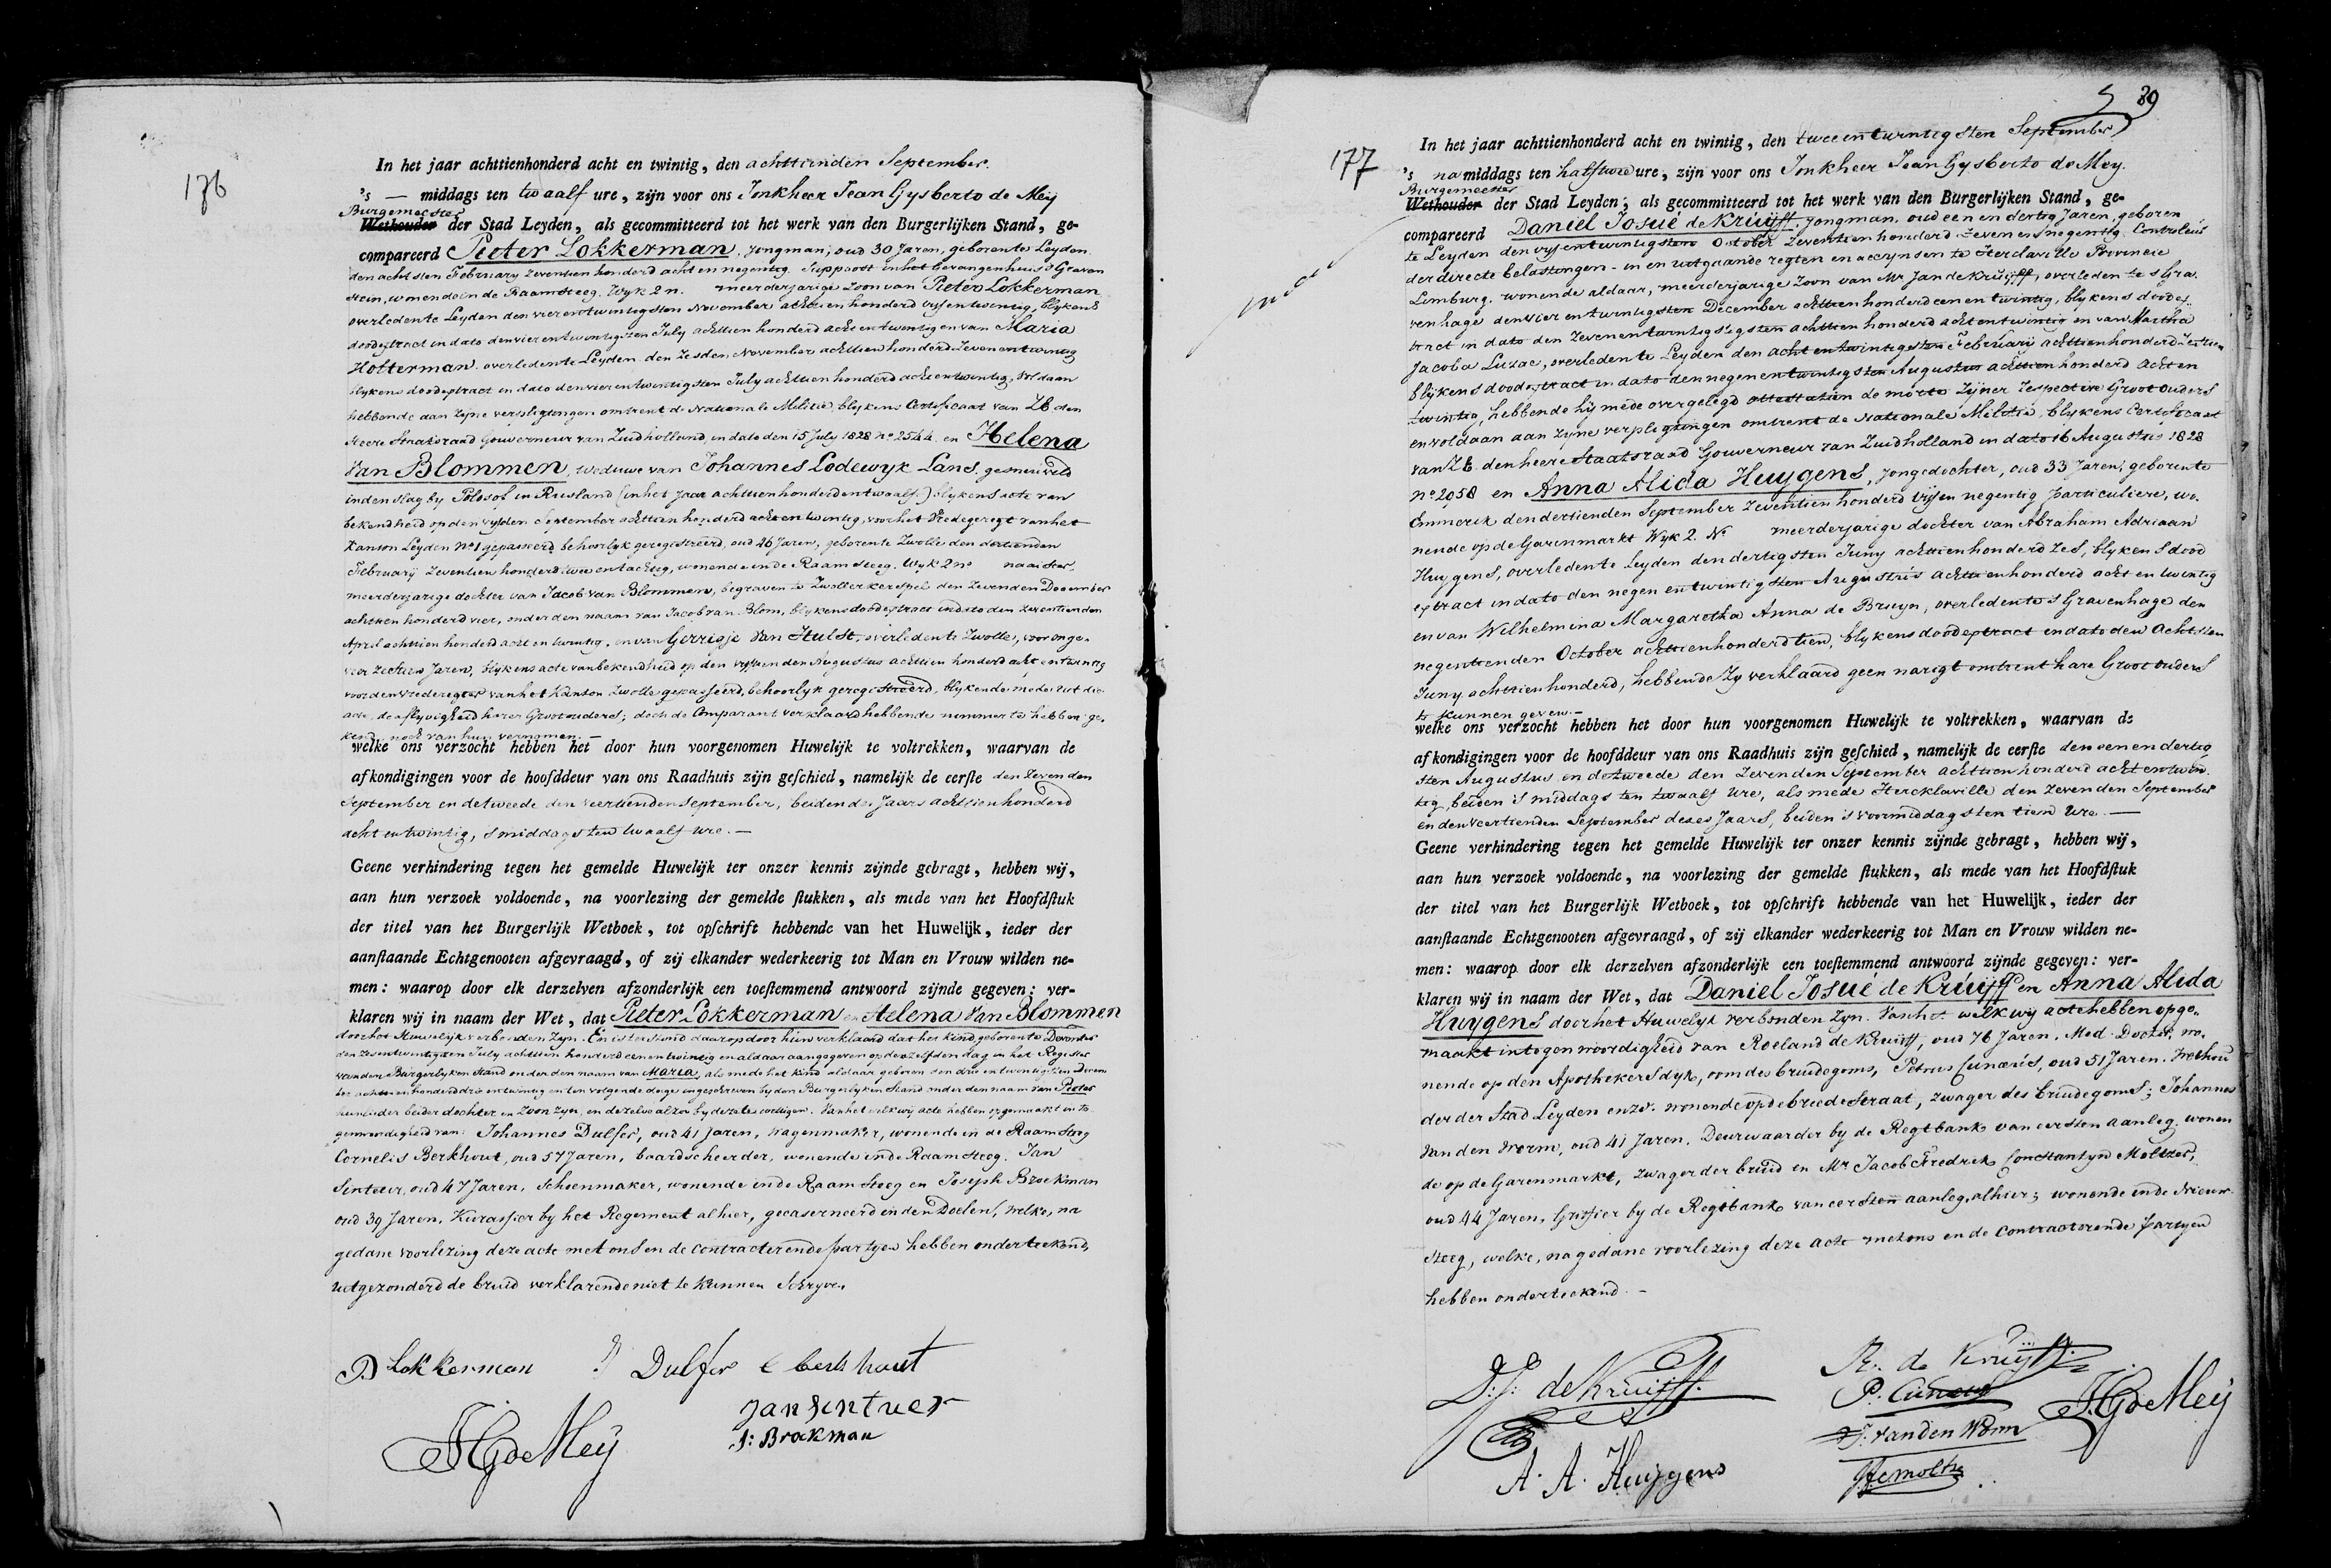 176
In het jaar achttienhonderd acht en twintig, den achttienden September.
's — middags ten twaalf ure, zijn voor ons Jonkheer Jean Gysberto de Meij
Burgemeester
Wethouder der Stad Leyden, als gecommitteerd tot het werk van den Burgerlijken Stand, ge-
compareerd Pieter Lokkerman, jongman, oud 30 Jaren, geboren te Leyden
den achtsten February zeventien honderd acht en negentig. Suppoost in het bevangenhuis s Graven
stein, wonende in de Raamsteeg. Wyk 2 n. meerderjarige zoon van Pieter Lokkerman
overleden te Leyden den vierentwintigsten November achttien honderd vyfentwintig, blykens
doodextract in dato den vierentwintigsten July achttien honderd achtentwintig en van Maria
Holterman. overleden te Leyden den zesden November achttien honderd zevenentwintig
blykens doodextract in dato den vierentwintigsten July achttien honderd achtentwintig, voldaan
hebbende aan zyne verpligtingen omtrent de Nationale Militie, blykens Certificaat van ZE den
Heere Staatsraad Gouverneur van Zuidholland, in dato den 15 July 1828 no 2544. en Helena
van Blommen, Weduwe van Johannes Lodewyk Lans, gesneuveld
in den slag by Polosof in Rusland (in het jaar achttienhonderdentwaalf) blykens acte van
bekendheid op den vyfden September achttien honderd achtentwintig, voor het Vredegeregt van het
Kanton Leyden No 1 gepasseerd, behoorlyk geregistreerd, oud 46 Jaren, geboren te Zwolle den dertienden
February zeventien honderd twee en tachtig, wonende in de Raamsteeg. Wyk 2 no naaister.
meerderjarige dochter van Jacob van Blommen, begraven te Zwollerkerspel den zevenden December
achttien honderd vier, onder den naam van Jacob van Blom, blykens doodextract in dato den zeventienden
April achttien honderd acht en twintig, en van Gerrigje van Hulst, overleden te Zwolle, voor onge-
veer zestien Jaren, blykens acte van bekendheid op den vyftienden Augustus achttien honderd acht en twintig
voor den vrederegter van het Kanton Zwolle gepasseerd, behoorlyk geregistreerd, blykende mede uit die
acte, de aflyvigheid harer Grootouders; doch de Comparant verklaard hebbende nimmer te hebben ge-
kend, noch van hun vernomen. —
welke ons verzocht hebben het door hun voorgenomen Huwelijk te voltrekken, waarvan de
afkondigingen voor de hoofddeur van ons Raadhuis zijn geschied, namelijk de eerste den zevenden
September en de tweede den veertienden September, beiden des Jaars achttienhonderd
acht en twintig, s middags ten twaalf ure. —
Geene verhindering tegen het gemelde Huwelijk ter onzer kennis zijnde gebragt, hebben wij,
aan hun verzoek voldoende, na voorlezing der gemelde stukken, als mede van het Hoofdstuk
der titel van het Burgerlijk Wetboek, tot opschrift hebbende van het Huwelijk, ieder der
aanstaande Echtgenooten afgevraagd, of zij elkander wederkeerig tot Man en Vrouw wilden ne-
men: waarop door elk derzelven afzonderlijk een toestemmend antwoord zijnde gegeven: ver-
klaren wij in naam der Wet, dat Pieter Lokkerman en Helena van Blommen
door het Huwelyk verbonden zyn. En is terstond daarop door hun verklaard dat het kind geboren te Deventer
den zesentwintigsten July achttien honderd eenentwintig en aldaar aangegeven op denzelfden dag in het Register
van den Burgerlyken Stand onder den naam van Maria, als mede het kind aldaar geboren den drieentwintigsten Decem-
ber achttien honderd drieentwintig en ten volgende dage ingeschreven by den Burgerlyken Stand onder den naam van Pieter
hunlieder beider dochter en zoon zyn, en dezelve alzoo by deze te wettigen. Van het welk wij acte hebben opgemaakt in te-
genwoordigheid van: Johannes Dulfer, oud 41 Jaren, wagenmaker, wonende in de Raamsteeg
Cornelis Berkhout, oud 57 Jaren, baardscheerder, wonende in de Raamsteeg. Jan
Sinteur, oud 47 Jaren, Schoenmaker, wonende in de Raamsteeg en Joseph Brokman
oud 39 Jaren, Kurassier by het Regement alhier, gecaserneerd in den Doelen, welke, na
gedane voorlezing deze acte met ons en de contracterende partyen hebben onderteekend,
uitgezonderd de bruid verklarende niet te kunnen schryven
P Lokkerman J Dulfer C berkhout
Jan Sentuer
J: Brokman
JG de Meij
89
177
In het jaar achttienhonderd acht en twintig, den tweeentwintigsten September
's na middags ten half twee ure, zijn voor ons Jonkheer Jean Gysberto de Mey.
Burgemeester
Wethouder der Stad Leyden, als gecommitteerd tot het werk van den Burgerlijken Stand, ge-
compareerd Daniel Josué de Kruijff, jongman, oud een en dertig Jaren, geboren
te Leyden den vyfentwintigsten October zeventien honderd zeven en negentig. Controleur
der directe belastingen, in en uitgaande regten en accynsen te Herclaville Provincie
Limburg. wonende aldaar, meerderjarige zoon van Mr Jan de Kruijff, overleden te s Gra-
venhage den vier en twintigsten December achttien honderd een en twintig, blykens doodex-
tract in dato den zevenentwintigsten achttien honderd acht entwintig en van Martha
Jacoba Luzac, overleden te Leyden den acht en twintigsten February achttienhonderd zestien
blykens doodextract in dato den negenentwintigsten Augustus achttien honderd acht en
twintig, hebbende hij mede overgelegd attestatien de morte zyner respective Grootouders
en voldaan aan zyne verpligtingen omtrent de Nationale Militie, blykens Certificaat
van ZE den heere Staatsraad Gouverneur van Zuidholland in dato 16 Augustus 1828
no 2058 en Anna Alida Huygens, Jongedochter, oud 33 Jaren, geboren te
Emmerik den dertienden September zeventien honderd vijfen negentig particuliere, wo-
nende op de Garenmarkt Wyk 2. No meerderjarige dochter van Abraham Adriaan
Huygens, overleden te Leyden den dertigsten Juny achttienhonderd zes, blykens dood
extract in dato den negen en twintigsten Augustus achttienhonderd acht en twintig
en van Wilhelmina Margaretha Anna de Bruyn, overleden te s Gravenhage den
negentienden October achttienhonderd tien, blykens doodextract in dato den achtsten
Juny achttienhonderd, hebbende Zy verklaard geen narigt omtrent hare Grootouders
te kunnen geven. —
welke ons verzocht hebben het door hun voorgenomen Huwelijk te voltrekken, waarvan de
afkondigingen voor de hoofddeur van ons Raadhuis zijn geschied, namelijk de eerste den een en dertig
sten Augustus en de tweede den zevenden September achttienhonderd acht entwin-
tig, beiden s middags ten twaalf ure, als mede Hercklaville den zevenden September
en den veertienden September dezes Jaars, beiden s voormiddags ten tien ure. —
Geene verhindering tegen het gemelde Huwelijk ter onzer kennis zijnde gebragt, hebben wij,
aan hun verzoek voldoende, na voorlezing der gemelde stukken, als mede van het Hoofdstuk
der titel van het Burgerlijk Wetboek, tot opschrift hebbende van het Huwelijk, ieder der
aanstaande Echtgenooten afgevraagd, of zij elkander wederkeerig tot Man en Vrouw wilden ne-
men: waarop door elk derzelven afzonderlijk een toestemmend antwoord zijnde gegeven: ver-
klaren wij in naam der Wet, dat Daniel Josué de Kruijff en Anna Alida
Huygens door het Huwelyk verbonden zyn. Van het welk wy acte hebben opge-
maakt in tegenwoordigheid van Roeland de Kruijff, oud 76 Jaren, Med. Doctor, wo-
nende op den Apothekersdyk, oom des bruidegoms, Petrus Cunaeus, oud 51 Jaren. Wethou
der der Stad Leyden enzv. wonende op de breedestraat, zwager des bruidegoms; Johannes
van den Worm, oud 41 Jaren. Deurwaarder by de Regtbank van eersten aanleg. wonen
de op de Garenmarkt, zwager der bruid en Mr Jacob Fredrik Constantyn Moltzer,
oud 44 Jaren, Griffier by de Regtbank van eersten aanleg, alhier; wonende in de Nieuw
steeg, welke, na gedane voorlezing deze acte met ons en de Contracterende partyen
hebben onderteekend. —
D: J: de Kruijff.
A. A. Huijgens
R. de Kruijff.
P. Cunaeus
J. van den Worm
JG de Meij